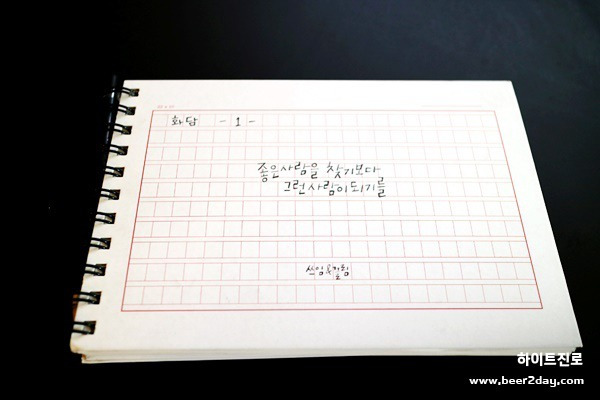 화담 -1-
좋은사람을 찾기보다
그런사람이되기를
하이트진로
www.beer2day.com